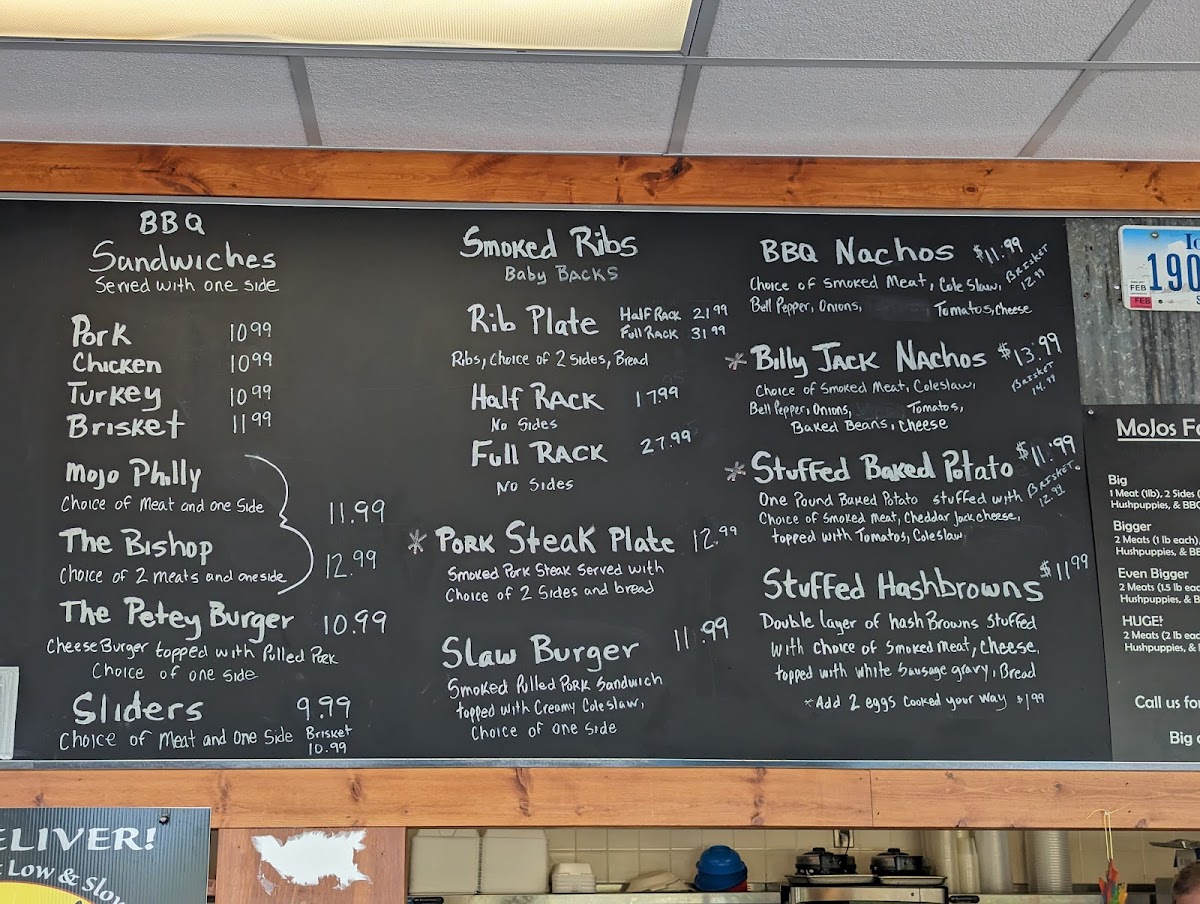 BBQ
Sandwiches
Served with one side
Pork 10.99
Chicken 10.99
Turkey 10.99
Brisket 11.99
Mojo Philly
Choice of Meat and one Side 11.99
The Bishop
Choice of 2 meats and one side 12.99
The Petey Burger 10.99
Cheese Burger topped with Pulled Pork
Choice of one side
Sliders 9.99
Choice of Meat and One Side Brisket
10.99
Smoked Ribs
Baby Backs
Rib Plate Half Rack 21.99
Full Rack 31.99
Ribs, Choice of 2 Sides, Bread
Half Rack 17.99
No Sides
Full Rack 27.99
No Sides
* Pork Steak Plate 12.99
Smoked Pork Steak Served with
Choice of 2 Sides and bread
Slaw Burger 11.99
Smoked Pulled Pork Sandwich
topped with Creamy Coleslaw,
Choice of one side
BBQ Nachos $11.99
Choice of Smoked Meat, Cole Slaw, Brisket
12.99
Bell Pepper, Onions, Tomatos, Cheese
* Billy Jack Nachos $13.99
Choice of Smoked Meat, Coleslaw, Brisket
14.99
Bell Pepper, Onions, Tomatos,
Baked Beans, Cheese
* Stuffed Baked Potato $11.99
One Pound Baked Potato stuffed with Brisket.
12.99
Choice of Smoked Meat, Cheddar Jack cheese,
topped with Tomatos, Coleslaw
Stuffed Hashbrowns $11.99
Double layer of hash Browns stuffed
with choice of smoked meat, cheese,
topped with white sausage gravy, Bread
*Add 2 eggs cooked your way $1.99
190
FEB
FEB
MoJos
Big
1 Meat (1lb), 2 Sides
Hushpuppies, &
Bigger
2 Meats (1 lb each),
Hushpuppies, &
Even Bigger
2 Meats (1.5 lb
Hushpuppies, &
HUGE!
2 Meats (2 lb
Hushpuppies, &
Call us for
Big
ELIVER!
Low & Slow